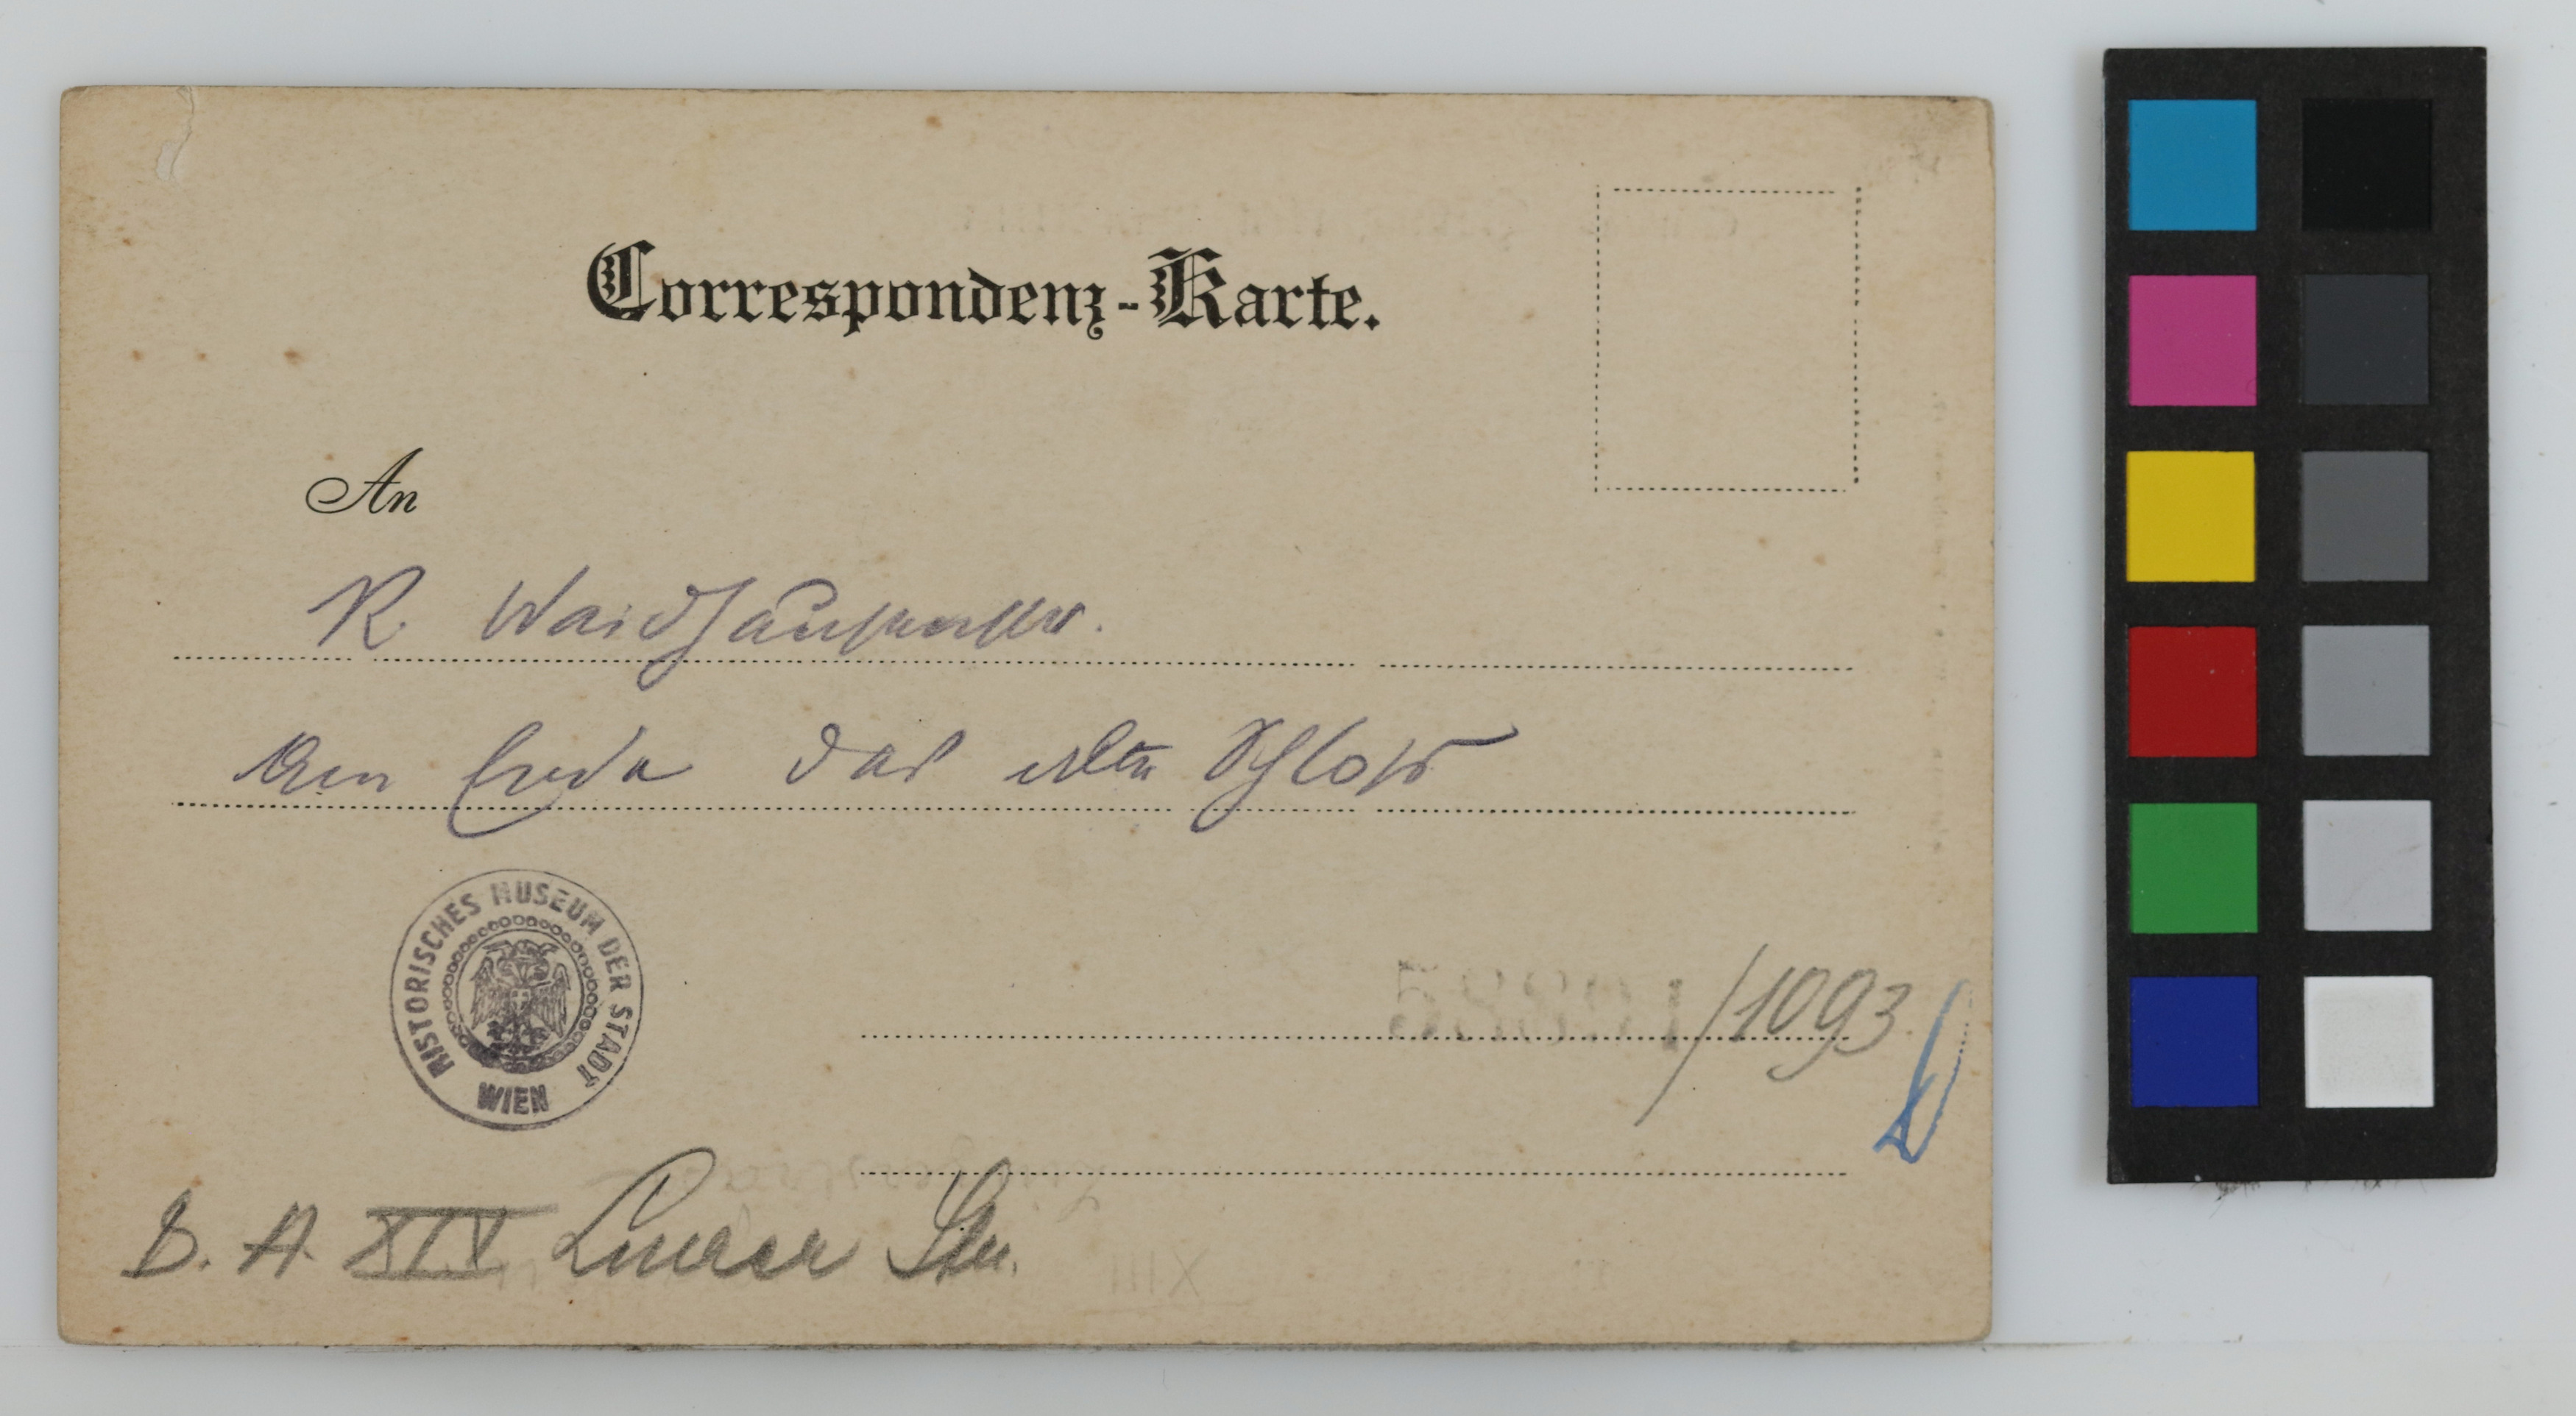 Correspondenz-Karte.
An
R. Waidhausenstr.
Am Ende das alte Schloss
HISTORISCHES MUSEUM DER STADT WIEN
/1093
B. A. XIV Linzer Str.